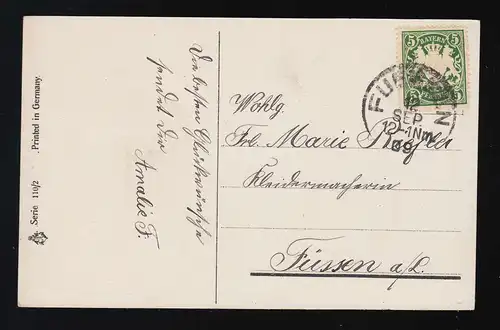 Serie 110/2 Printed in Germany
Die besten Glückwünsche
sendet Dir
Amalie F.
5 BAYERN 5
FÜSSEN
12
SEP
12-1Nm
09
Wohlg.
Frl. Marie
Kleidermacherin
Füssen a/L.